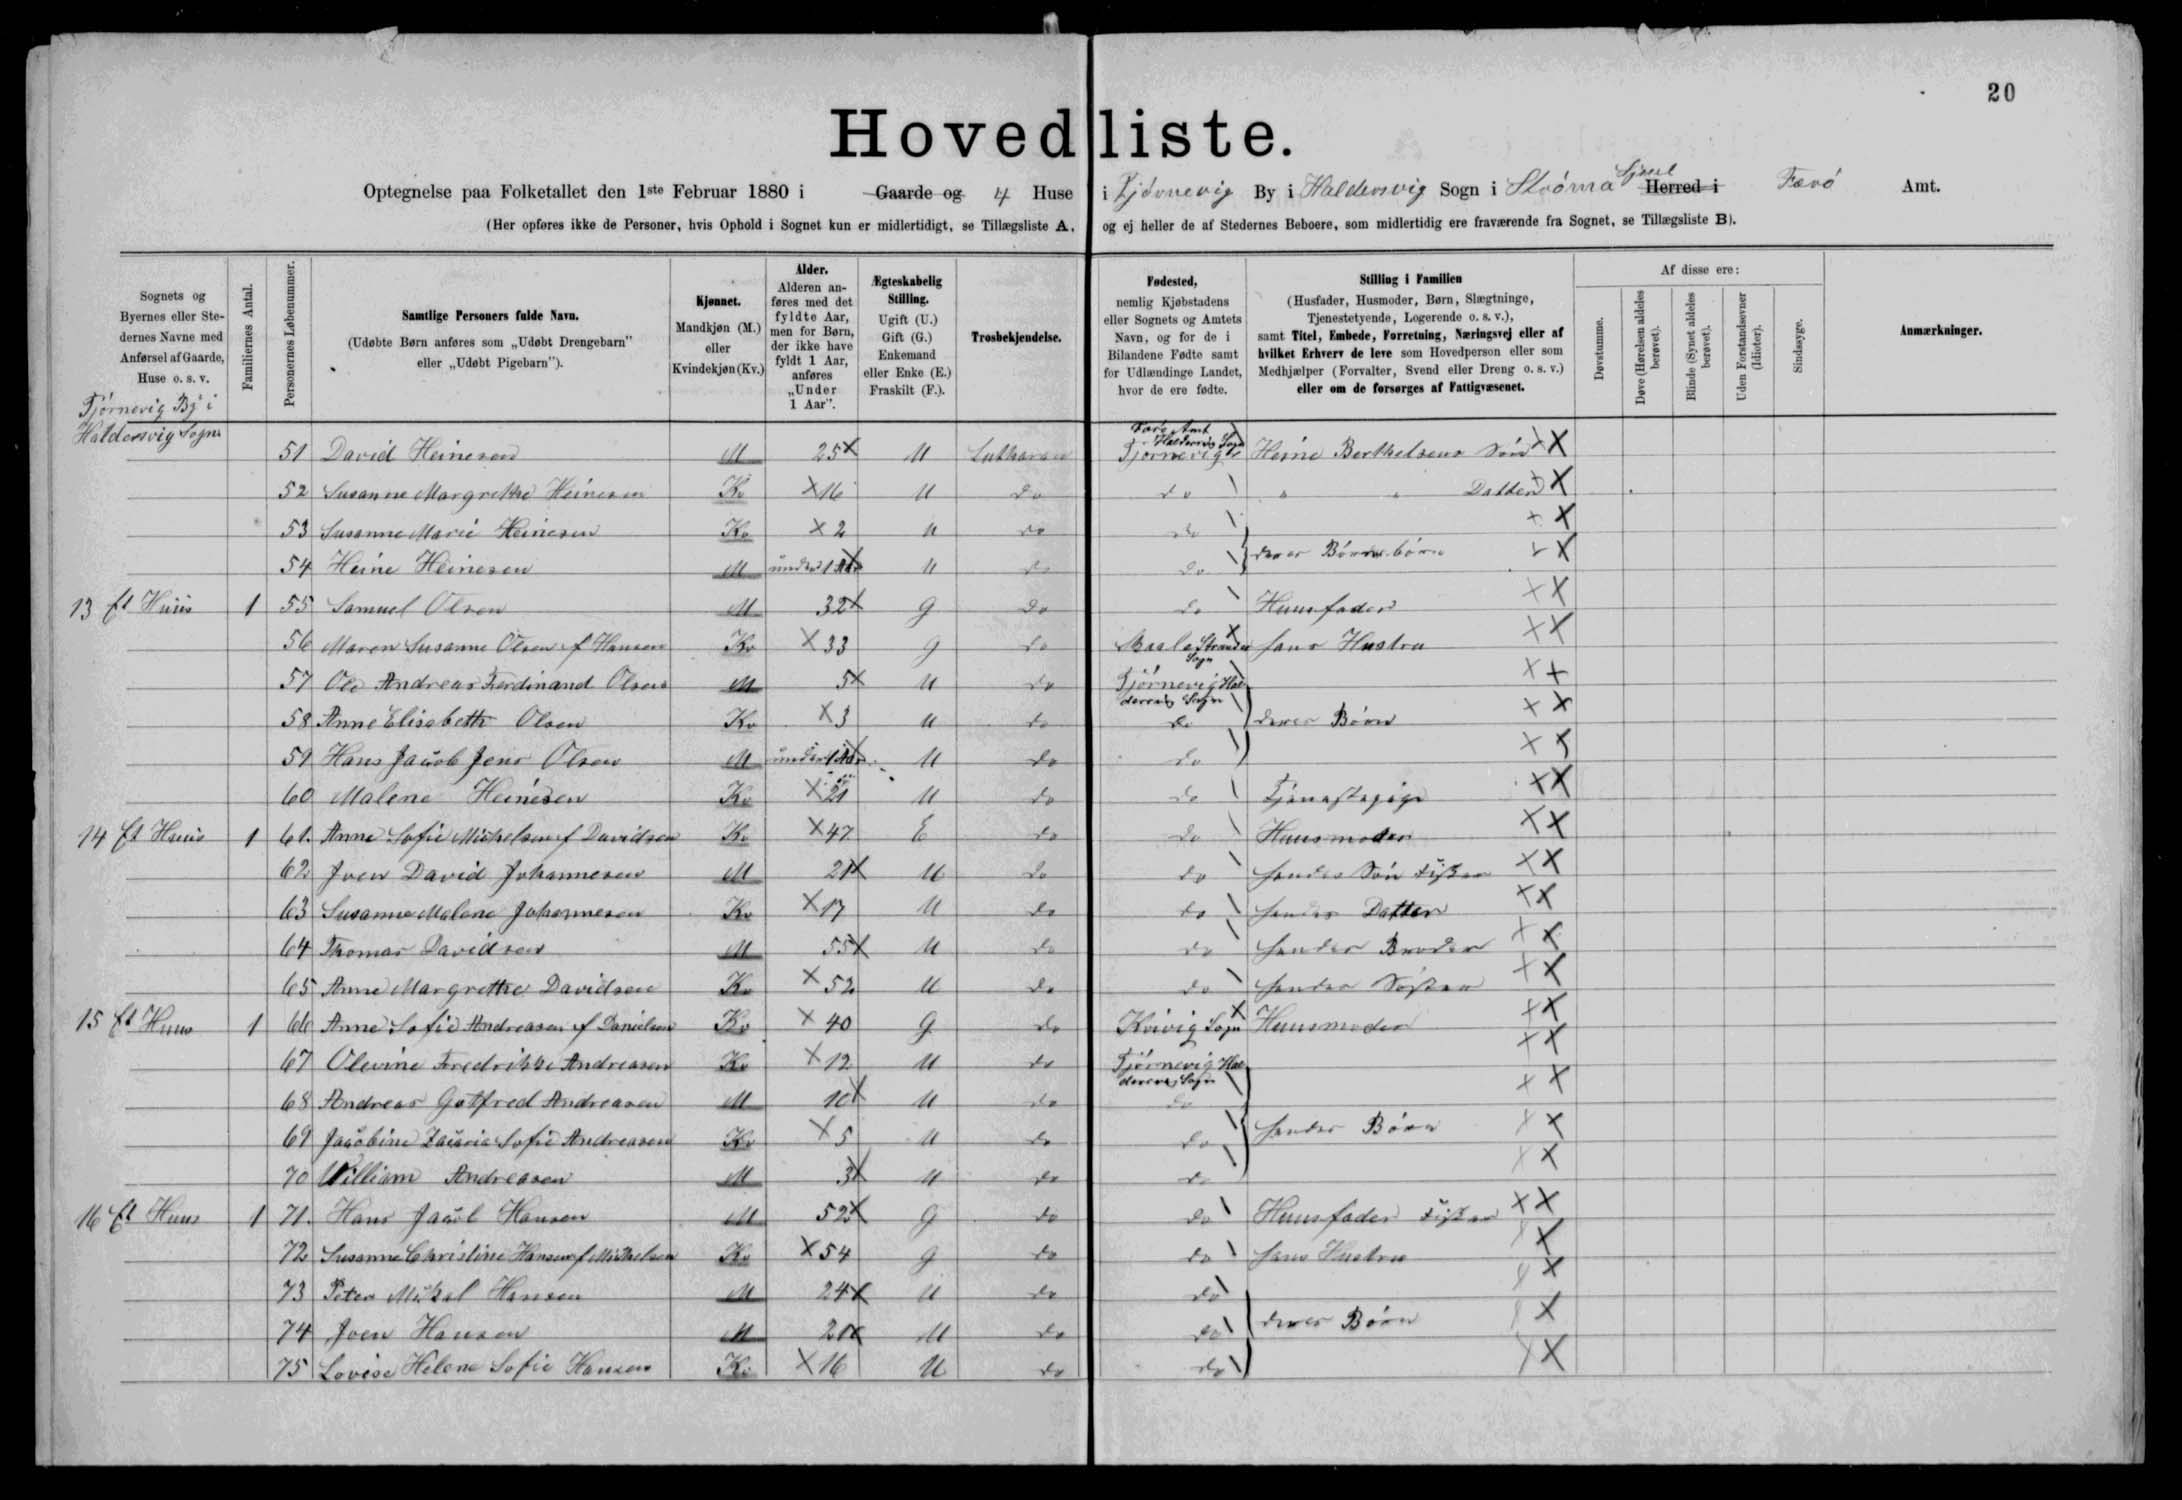 20
Hovedliste.
Optegnelse paa Folketallet den 1ste Februar 1880 i Gaarde og 4 Huse i Tjørnevig By i Haldersvig Sogn i Strømø Syssel Herred i Færø Amt.
(Her opføres ikke de Personer, hvis Ophold i Sognet kun er midlertidigt, se Tillægsliste A, og ej heller de af Stedernes Beboere, som midlertidig ere fraværende fra Sognet, se Tillægsliste B).
Sognets og Byernes eller Stedernes Navne med Anførsel af Gaarde, Huse o. s. v.
Familiernes Antal.
Personernes Løbenummer.
Samtlige Personers fulde Navn.
(Udøbte Børn anføres som „Udøbt Drengebarn" eller „Udøbt Pigebarn").
Kjønnet.
Mandkjøn (M.) eller Kvindekjøn (Kv.)
Alder.
Alderen anføres med det fyldte Aar, men for Børn, der ikke have fyldt 1 Aar, anføres „Under 1 Aar".
Ægteskabelig Stilling.
Ugift (U.) Gift (G.) Enkemand eller Enke (E.) Fraskilt (F.).
Trosbekjendelse.
Fødested,
nemlig Kjøbstadens eller Sognets og Amtets Navn, og for de i Bilandene Fødte samt for Udlændinge Landet, hvor de ere fødte.
Stilling i Familien
(Husfader, Husmoder, Børn, Slægtninge, Tjenestetyende, Logerende o. s. v.),
samt Titel, Embede, Forretning, Næringsvej eller af hvilket Erhverv de leve som Hovedperson eller som Medhjælper (Forvalter, Svend eller Dreng o. s. v.) eller om de forsørges af Fattigvæsenet.
Af disse ere:
Døvstumme.
Døve (Hørelsen aldeles berøvet).
Blinde (Synet aldeles berøvet).
Uden Forstandsevner (Idioter).
Sindssyge.
Anmærkninger.
Tjørnevig By i
Haldersvig Sogn
51 David Heinesen M 25 U Lutheraner Færø Amt Haldersvig Sogn Tjørnevig Heine Berthelsens Søn
52 Susanne Margrethe Heinesen Kv 16 U do do " " Datter
53 Susanne Marie Heinesen Kv 2 U do do
54 Heine Heinesen M under 1 Aar U do do deres Børnebørn
13 Et Huus 1 55 Samuel Olsen M 32 G do do Huusfader
56 Maren Susanne Olsen f Hansen Kv 33 G do Sogn hans Hustru
57 Ole Andreas Ferdinand Olsen M 5 U do Tjørnevig Haldersvig Sogn
58 Anne Elisabeth Olsen Kv 3 U do do deres Børn
59 Hans Jacob Jens Olsen M under 1 Aar U do do
60 Malene Heinesen Kv 21 U do do Tjenestepige
14 Et Huus 1 61. Anne Sofie Michelsen f Davidsen Kv 47 E do do Huusmoder
62 Joen David Johannesen M 21 U do do hendes Søn Fisker
63 Susanne Malene Johannesen Kv 17 U do do hendes Datter
64 Thomas Davidsen M 55 U do do hendes Broder
65 Anne Margrethe Davidsen Kv 52 U do do hendes Søster
15 Et Huus 1 66 Anne Sofie Andreasen f Danielsen Kv 40 G do Kvivig Sogn Huusmoder
67 Olevine Fredrikke Andreasen Kv 12 U do Tjørnevig Haldersvig Sogn
68 Andreas Gotfred Andreasen M 10 U do do
69 Jacobine Sofie Andreasen Kv 5 U do do hendes Børn
70 William Andreasen M 3 U do do
16 Et Huus 1 71. Hans Jacob Hansen M 52 G do do Huusfader Fisker
72 Susanne Christine Hansen f Michelsen Kv 54 G do do hans Hustru
73 Peter Mikal Hansen M 24 U do do
74 Joen Hansen M U do do deres Børn
75 Lovise Helene Sofie Hansen Kv 16 U do do